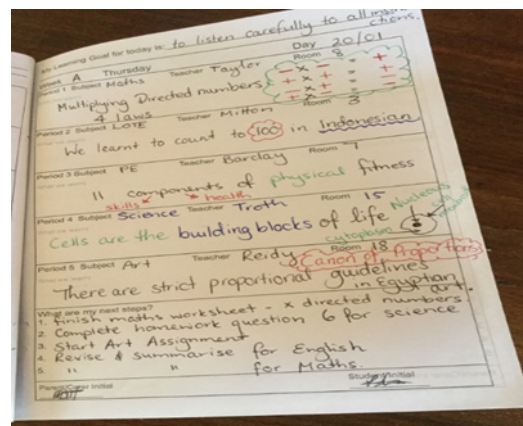 My Learning Goal for today is: to listen carefully to all instructions.
Week A Thursday Day 20/01
Period 1 Subject Maths Teacher Taylor Room 8
Multiplying Directed numbers
4 laws
- x - = +
+ x + = +
- x + = -
+ x - = -
Period 2 Subject LOTE Teacher Milton Room 3
We learnt to count to 100 in Indonesian
Period 3 Subject PE Teacher Barclay Room 1
11 components of physical fitness
skills health
Period 4 Subject Science Teacher Troth Room 15
Cells are the building blocks of life
Nucleus
cytoplasm
Period 5 Subject Art Teacher Reidy Room 18
Canon of Proportions
There are strict proportional guidelines
in Egyptian art.
What are my next steps?
1. Finish maths worksheet - x directed numbers
2. Complete homework question 6 for science
3. Start Art Assignment
4. Revise & summarise for English
5. " " for Maths.
Parent/Carer Initial Student Initial